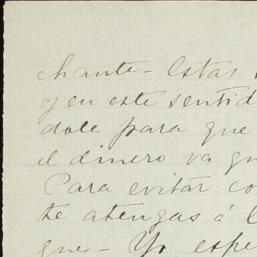 chante- Estas
y en este sentid
dole para que
el dinero va qu
Para evitar co
te atengas á l
que- Yo espe